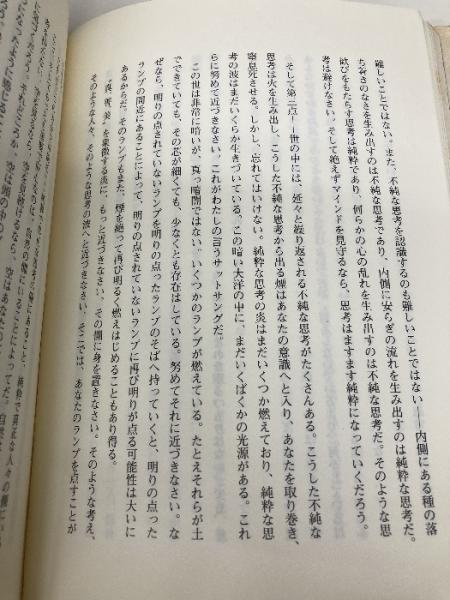 難しいことではない。また、不純な思考を認識するのも難しいことではない――内側にある種の落
ち着きのなさを生み出すのは不純な思考であり、内側に安らぎの流れを生み出すのは純粋な思考だ。
歓びをもたらす思考は純粋であり、何らかの心の乱れを生み出すのは不純な思考だ。そのような思
考は避けなさい。そして絶えずマインドを見守るなら、思考はますます純粋になっていくだろう。
そして第二点――世の中には、延々と繰り返される不純な思考がたくさんある。こうした不純な
思考は火を生み出し、こうした不純な思考から出る煙はあなたの意識へと入り、あなたを取り巻き、
窒息死させる。しかし、忘れてはいけない。純粋な思考の炎はまだいくつか燃えており、純粋な思
考の波はまだいくらか生きづいている。この暗い大洋の中に、まだいくばくかの光源がある。これ
らに努めて近づきなさい。これがわたしの言うサットサングだ。
この世は非常に暗いが、真っ暗闇ではない。いくつかのランプが燃えている。たとえそれらが土
でできていても、その芯が細くても、少なくとも存在はしている。努めてそれに近づきなさい。な
ぜなら、明りの点されていないランプを明りの点ったランプのそばへ持っていくと、明りの点った
ランプの間近にあることによって、明りの点されていないランプに再び明りが点る可能性は大いに
あるからだ。そのランプもまた、煙を絶って再び明るく燃えはじめることもあり得る。
“真・善・美”を象徴する炎に、もっと近づきなさい、その側に身を置きなさい。そのような考え、
そのような人々、そのような思考の波へと近づきなさい。そこでは、あなたのランプを点すことが